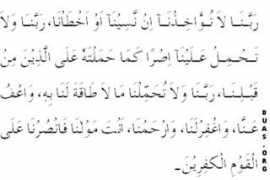 رَبَّنَا لَا تُؤَاخِذْنَا إِنْ نَّسِيْنَا أَوْ أَخْطَأْنَا، رَبَّنَا وَلَا
تَحْمِلْ عَلَيْنَا إِصْرًا كَمَا حَمَلْتَهُ عَلَى الَّذِينَ مِنْ
قَبْلِنَا، رَبَّنَا وَلَا تُحَمِّلْنَا مَا لَا طَاقَةَ لَنَا بِهِ، وَاعْفُ
عَنَّا، وَاغْفِرْلَنَا، وَارْحَمْنَا، أَنْتَ مَوْلٰنَا فَانْصُرْنَا عَلَى
الْقَوْمِ الْكٰفِرِيْنَ۔
DUAS.ORG